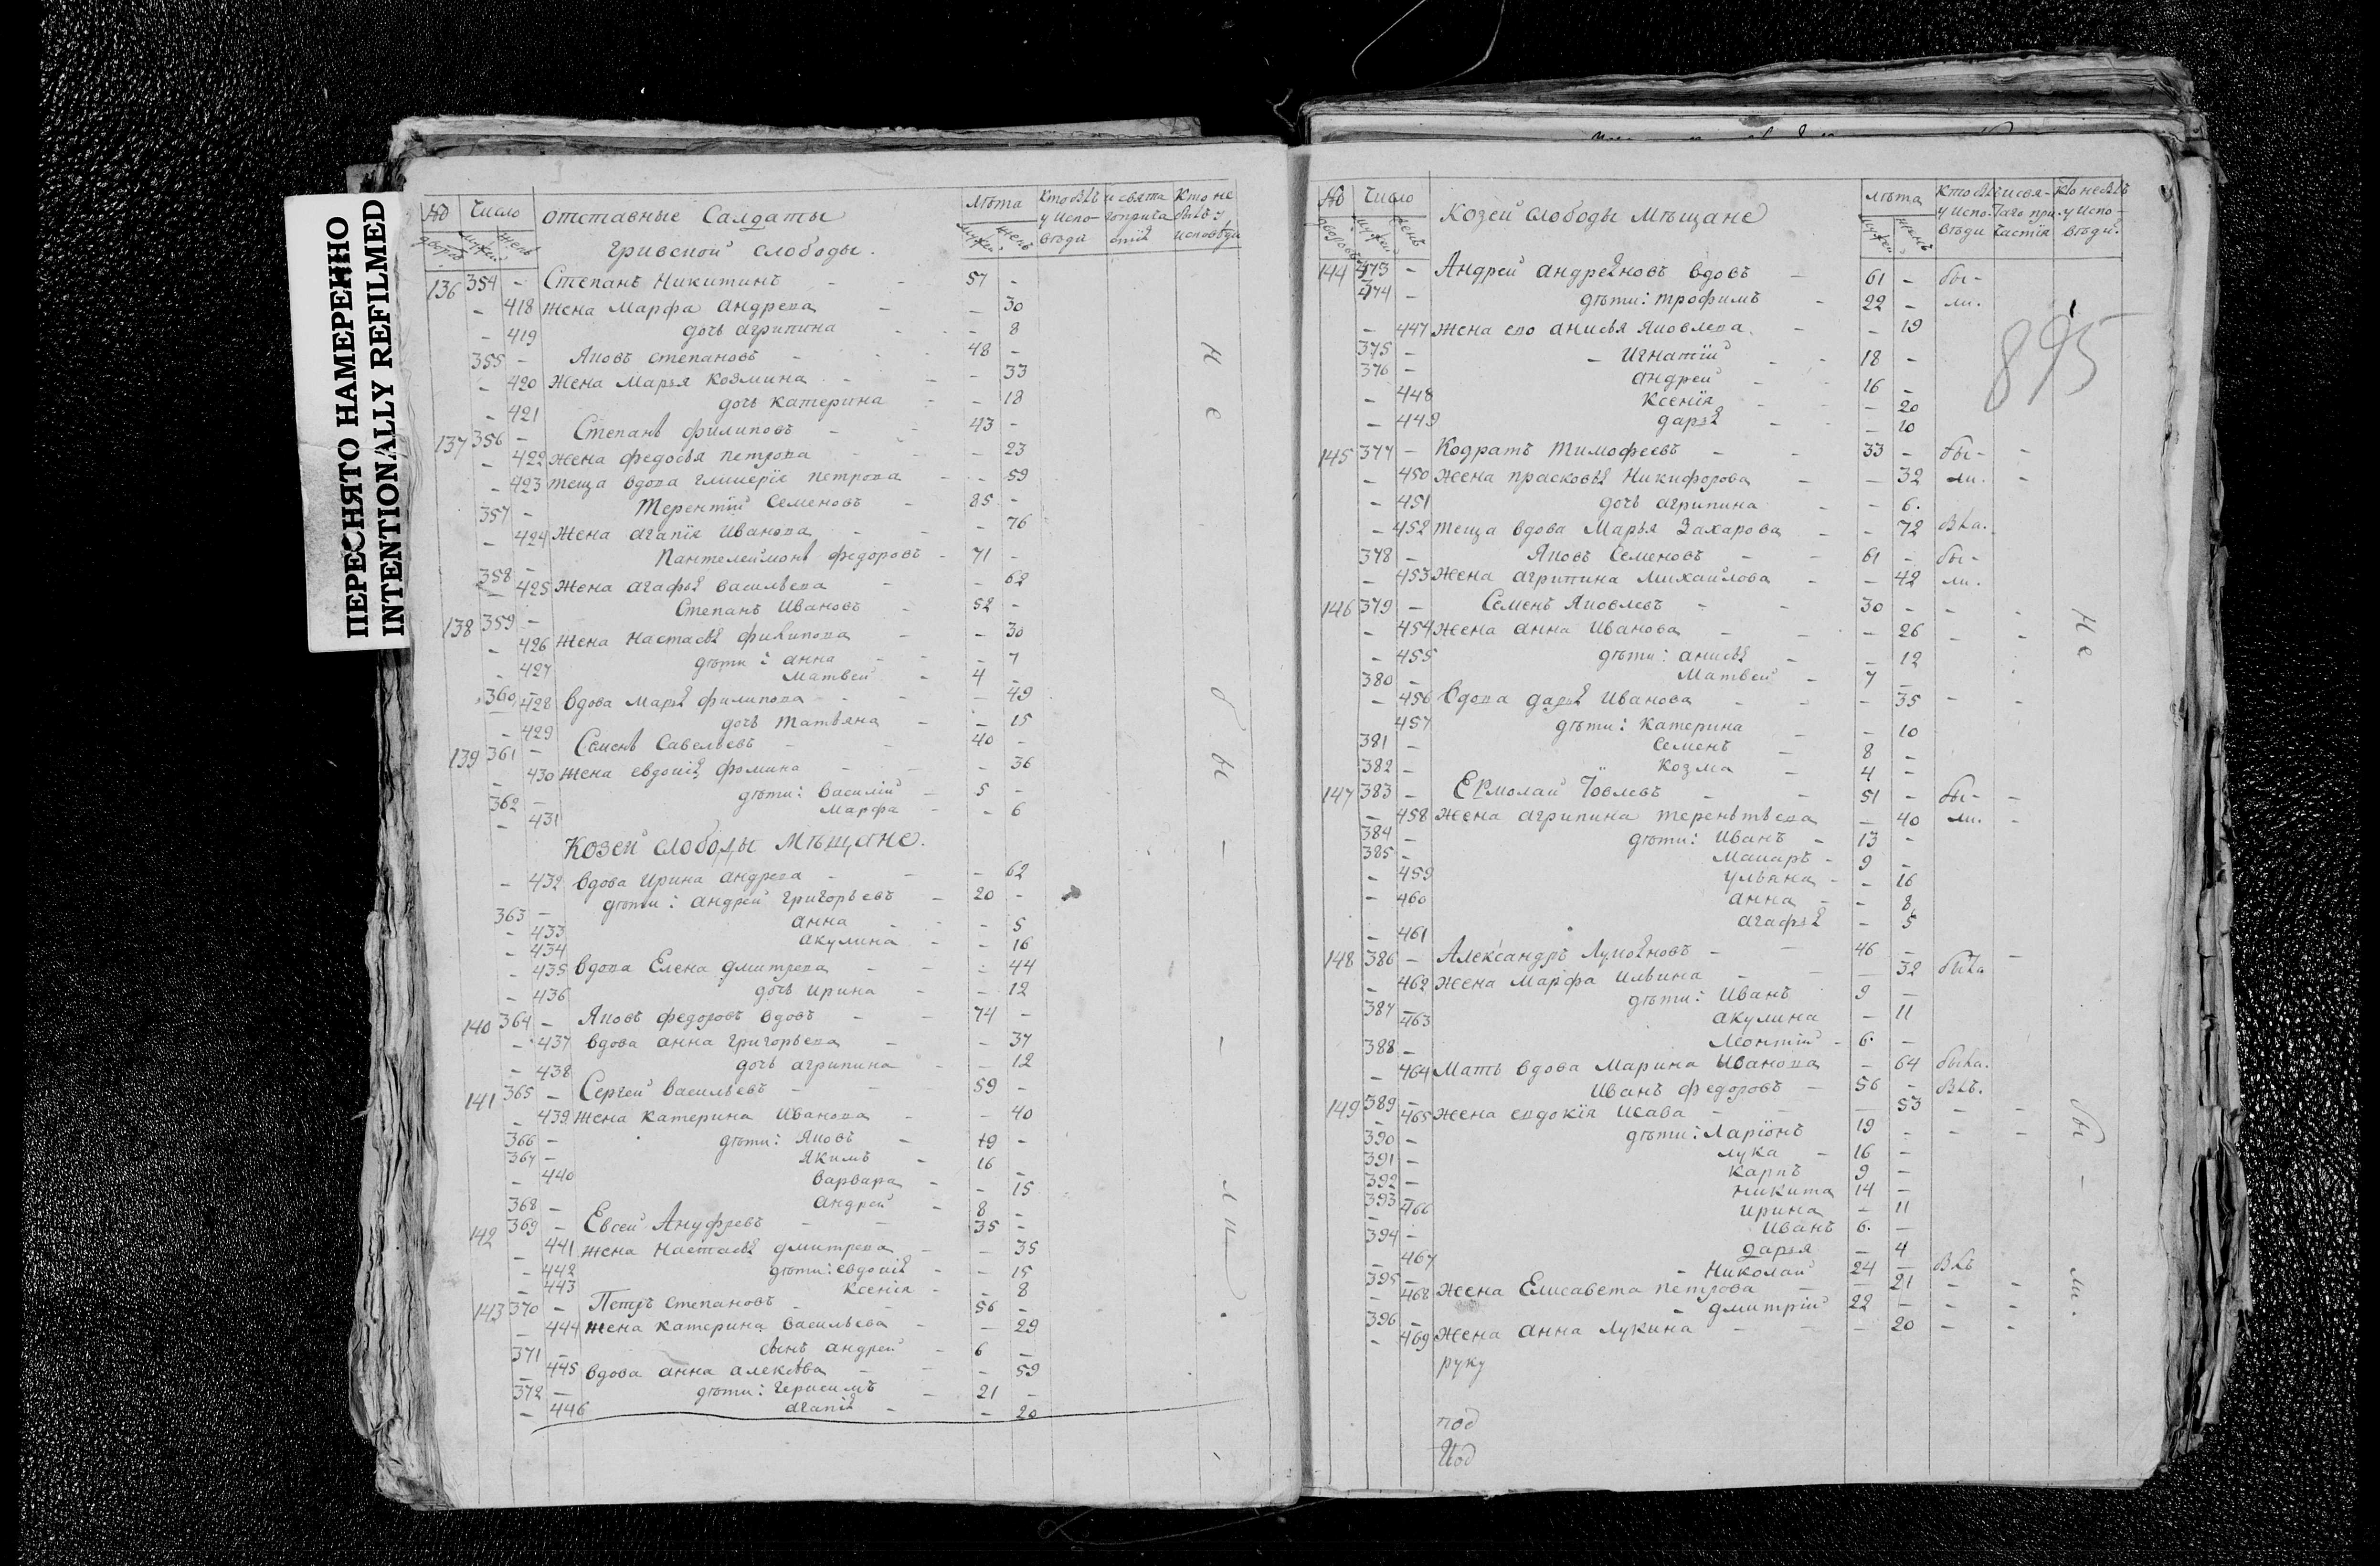 ПЕРЕСНЯТО НАМЕРЕННО
INTENTIONALLY REFILMED
№ Число отставные Салдаты лѣта Кто былъ и свята Кто не
дворов мужей женъ Гривской слободы. мужей женъ у испо- го прича былъ у
вѣди стія исповѣди
136 354 - Степанъ Никитинъ - - 57 -
- 418 жена Марфа андрева - - 30
- 419 дочь агрипина - - 8
355 - Яковъ степановъ - - 48 -
- 420 жена Марья козмина - - 33
- 421 дочь катерина - - 18
137 356 - Степанъ филиповъ - - 43 -
- 422 жена федосья петрова - 23
- 423 теща вдова гликерія петрова - - 59
357 - терентій Семеновъ - 85 -
- 424 жена агапія иванова - - 76
358 - Пантелеимонъ федоровъ - 71 -
- 425 жена агафья васильева - - 62
138 359 - Степанъ Ивановъ - 52 -
- 426 жена настасья филипова - - 30
- 427 дѣти: анна - - 7
360 - матвей - 4 -
428 вдова марья филипова - - 49
- 429 дочь татьяна - - 15
139 361 - Семенъ Савельевъ - - 40 -
- 430 жена евдокія фомина - - 36
362 - дѣти: василій - 5 -
- 431 марфа - - 6
Козей слободы мѣщане.
- 432 вдова ирина андрева - - 62
363 - дѣти: андрей григорьевъ - 20 -
- 433 анна - - 5
- 434 акулина - - 16
- 435 вдова Елена дмитрева - - 44
- 436 дочь ирина - - 12
140 364 - Яковъ федоровъ вдовъ - - 74 -
- 437 вдова анна григорьева - - 37
- 438 дочь агрипина - - 12
141 365 - Сергей васильевъ - - 59 -
- 439 жена катерина иванова - - 40
366 - дѣти: яковъ - 19 -
367 - якимъ - 16 -
- 440 варвара - - 15
368 - андрей - 8 -
142 369 - Евсей Ануфревъ - - 35 -
- 441 жена настасья дмитрева - - 35
- 442 дѣти: евдокія - - 15
- 443 ксенія - - 8
143 370 - Петръ степановъ - - 56 -
- 444 жена катерина васильева - - 29
371 - сынъ андрей - 6 -
- 445 вдова анна - - 59
372 - дѣти: герасимъ - 21 -
- 446 агапія - - 20
не бы-ли.
№ Число Козей слободы мѣщане лѣта Кто былъ и свя- Кто не былъ
дворовъ мужей женъ мужей женъ у испо- таго при- у испо-
вѣди частія вѣди.
895
144 373 - Андрей андреяновъ вдовъ - 61 - бы-
374 - дѣти: трофимъ - 22 - ли.
- 447 жена его анисья яковлева - - 19
375 - - игнатій - - 18 -
376 - андрей - 16 -
- 448 ксенія - - 20
- 449 дарья - - 10
145 377 - Кодратъ тимофеевъ - - 33 - бы- -
- 450 жена прасковья никифорова - - 32 ли. -
- 451 дочь агрипина - - 6.
- 452 теща вдова марья захарова - - 72 была.
378 - Яковъ Семеновъ - - 61 - бы-
- 453 жена агрипина михайлова - - 42 ли.
146 379 - Семенъ яковлевъ - - 30 - - -
- 454 жена анна иванова - - - 26 - -
- 455 дѣти: анисья - - 12
380 - матвей - 7 -
- 456 вдова дарья иванова - - - 35 - -
457 дѣти: катерина - - 10
381 - семенъ - 8 -
382 - козма - 4 -
147 383 - Ермолай Іовлевъ - - 51 - бы- -
- 458 жена агрипина терентьева - 40 ли. -
384 - дѣти: иванъ - 13 -
385 - макаръ - 9 -
- 459 ульяна - - 16
- 460 анна - - 8
- 461 агафья - 5
148 386 - Александръ Лукояновъ - - 46 - -
- 462 жена марфа ильина - - - 32 была
387 - дѣти: иванъ 9 -
463 акулина - 11
388 - леонтій - 6. -
- 464 мать вдова марина иванова - 64 была.
149 389 - иванъ федоровъ - 56 - былъ.
- 465 жена евдокія исава - - - 53 - -
390 - дѣти: ларіонъ 19 - - -
391 - лука - 16 -
392 - карпъ 9 -
393 - никита 14 -
- 466 ирина - 11
394 - иванъ 6. -
- 467 дарья - 4
395 - - николай 24 - былъ
- 468 жена Елисавета петрова - - 21 - -
396 - - дмитрій 22 - - -
- 469 жена анна лукина - - - 20 - -
не бы-ли.
руку
под
под